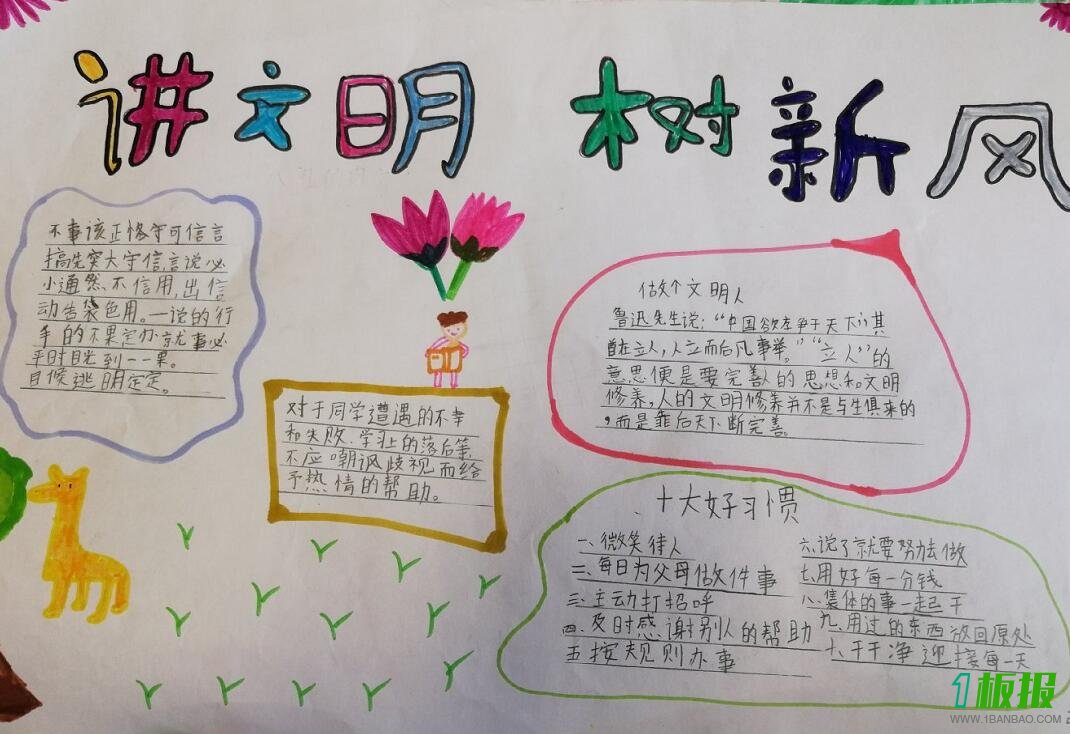 讲文明 树新风
不事该正恪守可信言
搞先突大守信,言说必
小通然、不信用,出信
动告袋色用。一说的行
手的不果定办就事必
平时目光到一一果。
目候逃明定定。
对于同学遭遇的不幸
和失败、学业的落后等,
不应嘲讽歧视而给
予热情的帮助。
做个文明人
鲁迅先生说:“中国欲在争于天下,其
首在立人,人立而后凡事举。”“立人”的
意思便是要完善人的思想和文明
修养,人的文明修养并不是与生俱来的
,而是靠后天不断完善。
十大好习惯
一、微笑待人
二、每日为父母做件事
三、主动打招呼
四、及时感谢别人的帮助
五按规则办事
六、说了就要努力去做
七、用好每一分钱
八、集体的事一起干
九、用过的东西放回原处
十、干干净迎接每一天
1板报
WWW.1BANBAO.COM